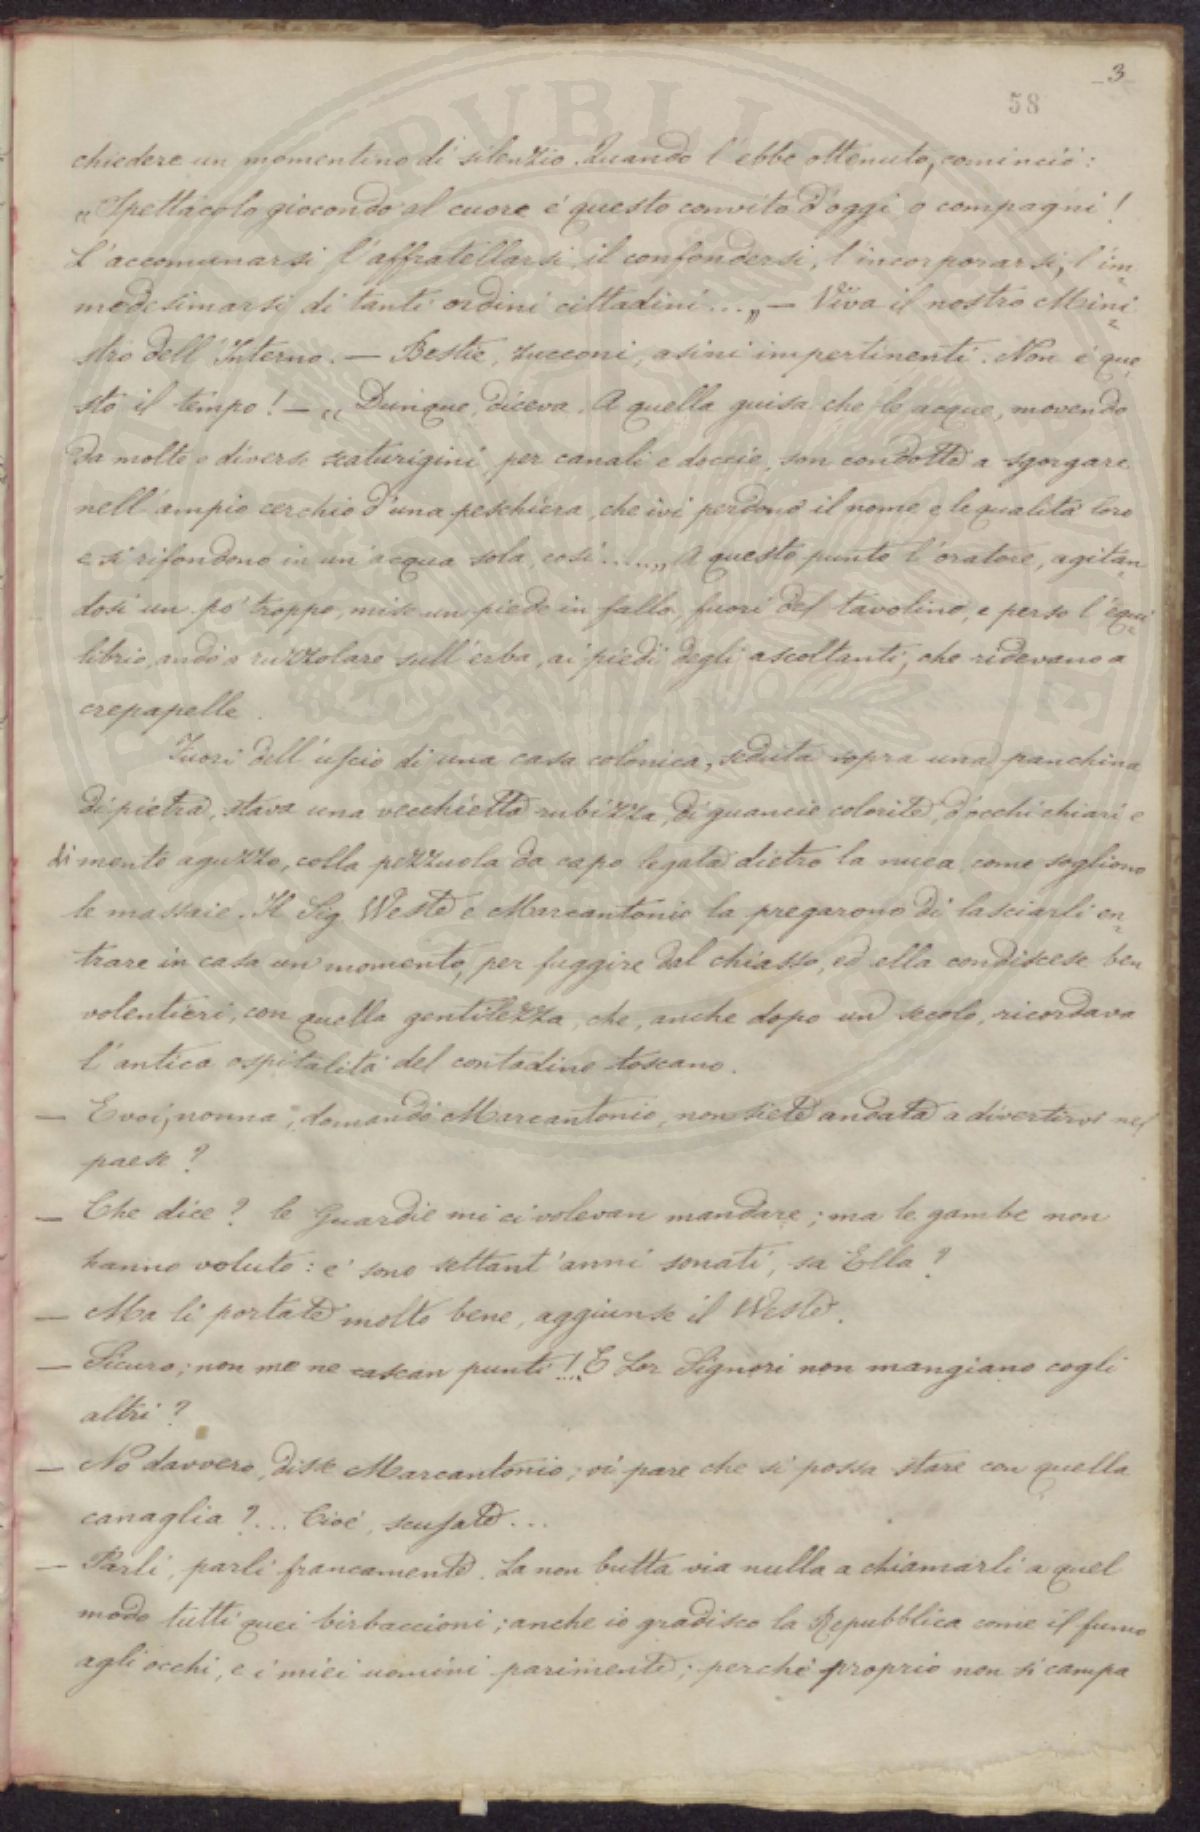 3
58
chiedere un momentino di silenzio. Quando l'ebbe ottenuto, cominciò:
„Spettacolo giocondo al cuore è questo convito d'oggi o compagni!
L'accomunarsi l'affratellarsi, il confondersi, l'incorporarsi, l'im=
medesimarsi di tanti ordini cittadini....„ — Viva il nostro Mini=
stro dell'Interno. — Bestie, zucconi, asini impertinenti. Non è que=
sto il tempo! — „Dunque, diceva. A quella guisa che le acque, movendo
da molte e diverse scaturigini, per canali e doccie, son condotte a sgorgare
nell'ampio cerchio d'una peschiera, che ivi perdono il nome e le qualità loro
e si rifondono in un'acqua sola, così.....„ A questo punto l'oratore, agitan=
dosi un po' troppo, mise un piede in fallo, fuori del tavolino, e perso l'equi=
librio, andò a ruzzolare sull'erba, ai piedi degli ascoltanti, che ridevano a
crepapelle.
Fuori dell'uscio di una casa colonica, seduta sopra una panchina
di pietra, stava una vecchietta rubizza, di guancie colorite, d'occhi chiari e
di mento aguzzo, colla pezzuola da capo legata dietro la nuca, come sogliono
le massaie. Il Sig. Weste e Marcantonio la pregarono di lasciarli en=
trare in casa un momento, per fuggire dal chiasso, ed ella condiscese ben
volentieri, con quella gentilezza, che, anche dopo un secolo, ricordava
l'antica ospitalità del contadino toscano.
— E voi, nonna, domandò Marcantonio, non siete andata a divertirvi nel
paese?
— Che dice? le Guardie mi ci volevan mandare; ma le gambe non
hanno voluto: e' sono settant'anni sonati, sa Ella?
— Ma li portate molto bene, aggiunse il Weste.
— Sicuro; non me ne cascan punti!... E Lor Signori non mangiano cogli
altri?
— No davvero, disse Marcantonio; vi pare che si possa stare con quella
canaglia?... Cioè, scusate...
— Parli, parli francamente. La non butta via nulla a chiamarli a quel
modo tutti quei birbaccioni; anche io gradisco la Repubblica come il fumo
agli occhi, e i miei uomini parimente; perchè proprio non si campa